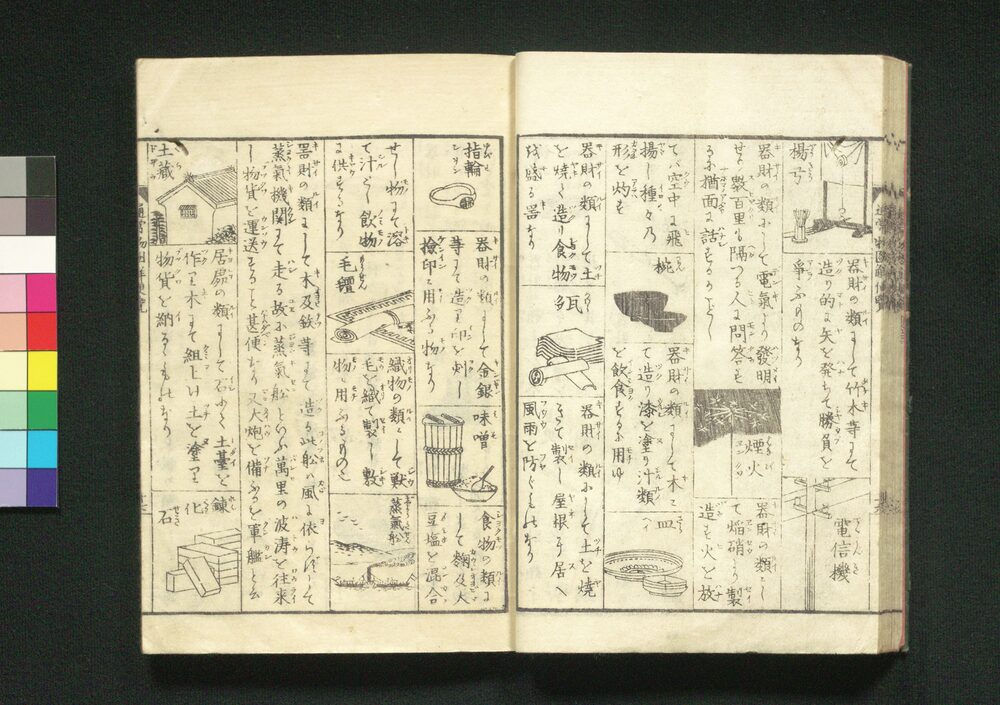 楊弓
器財の類にして竹木等にて
造り的に矢を発ちて勝負を
爭ふものなり
電信機
器財の類にして電氣より發明
せり數百里も隔つる人に問答も
猶面に話するがごとし
煙火
器財の類にし
て焔硝より製
造す火を放
て空中に飛
揚し種々乃
形を灼す
椀
器財の類にして木に
て造り漆を塗り汁類
を飲食するに用ゆ
皿
器財の類にして土
を焼き造り食物
を盛る器なり
瓦
器財の類にして土を焼
きて製し屋根より居へ
風雨を防ぐものなり
指輪
器財の類にして金銀
等にて造り印を刻し
檢印に用ふる物なり
味噌
食物の類に
して麹及大
豆塩を混合
せし物にて溶
て汁とし飲物
に供するなり
毛氈
織物の類にして獣
毛を織て製し敷
物に用ふるものなり
蒸氣船
器財の類にして木及鉄等にて造る此舩は風に依らずして
蒸氣機関にて走る故に蒸氣舩といふ萬里の波涛を往来
し物貨を運送するに甚便なり又大炮を備ふるを軍艦と云
土藏
居處の類にして石にて土臺を
作り木にて組上け土を塗り
物貨を納るるものなり
煉化
石